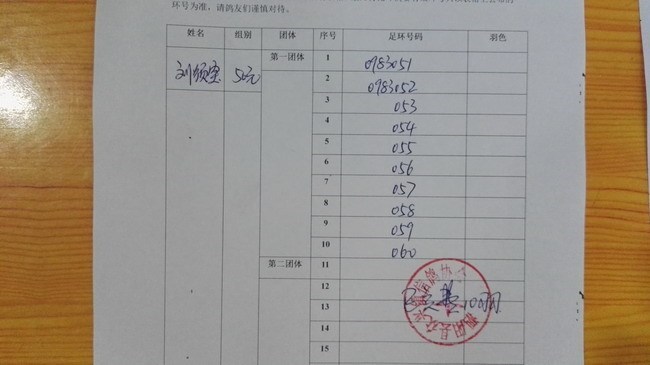 环号为准，请鸽友们谨慎对待。
姓名 组别 团体 序号 足环号码 羽色
刘领宝 50元 第一团体 1 0983051
2 0983052
3 053
4 054
5 055
6 056
7 057
8 058
9 059
10 060
第二团体 11
12
13
14
15